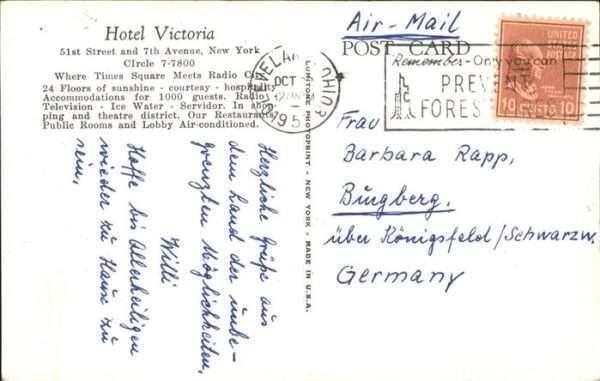 Hotel Victoria
51st Street and 7th Avenue, New York
CIrcle 7-7800
Where Times Square Meets Radio City
24 Floors of sunshine - courtesy - hospitality
Accommodations for 1000 guests. Radio
Television - Ice Water - Servidor. In shop-
ping and theatre district. Our Restaurant
Public Rooms and Lobby Air-conditioned.
Herzliche Grüße aus
dem Land der unbe-
grenzten Möglichkeiten,
Willi
Hoffe bis Allerheiligen
wieder zu Hause zu
sein.
LUMITONE PHOTOPRINT - NEW YORK - MADE IN U.S.A.
Air-Mail
POST CARD
OCT
195
OHIO
Remember-Only you can
PREVENT
FOREST
UNITED
STATES
10 CENTS 10
Frau
Barbara Rapp,
Burgberg,
über Königsfeld/Schwarzw.
Germany